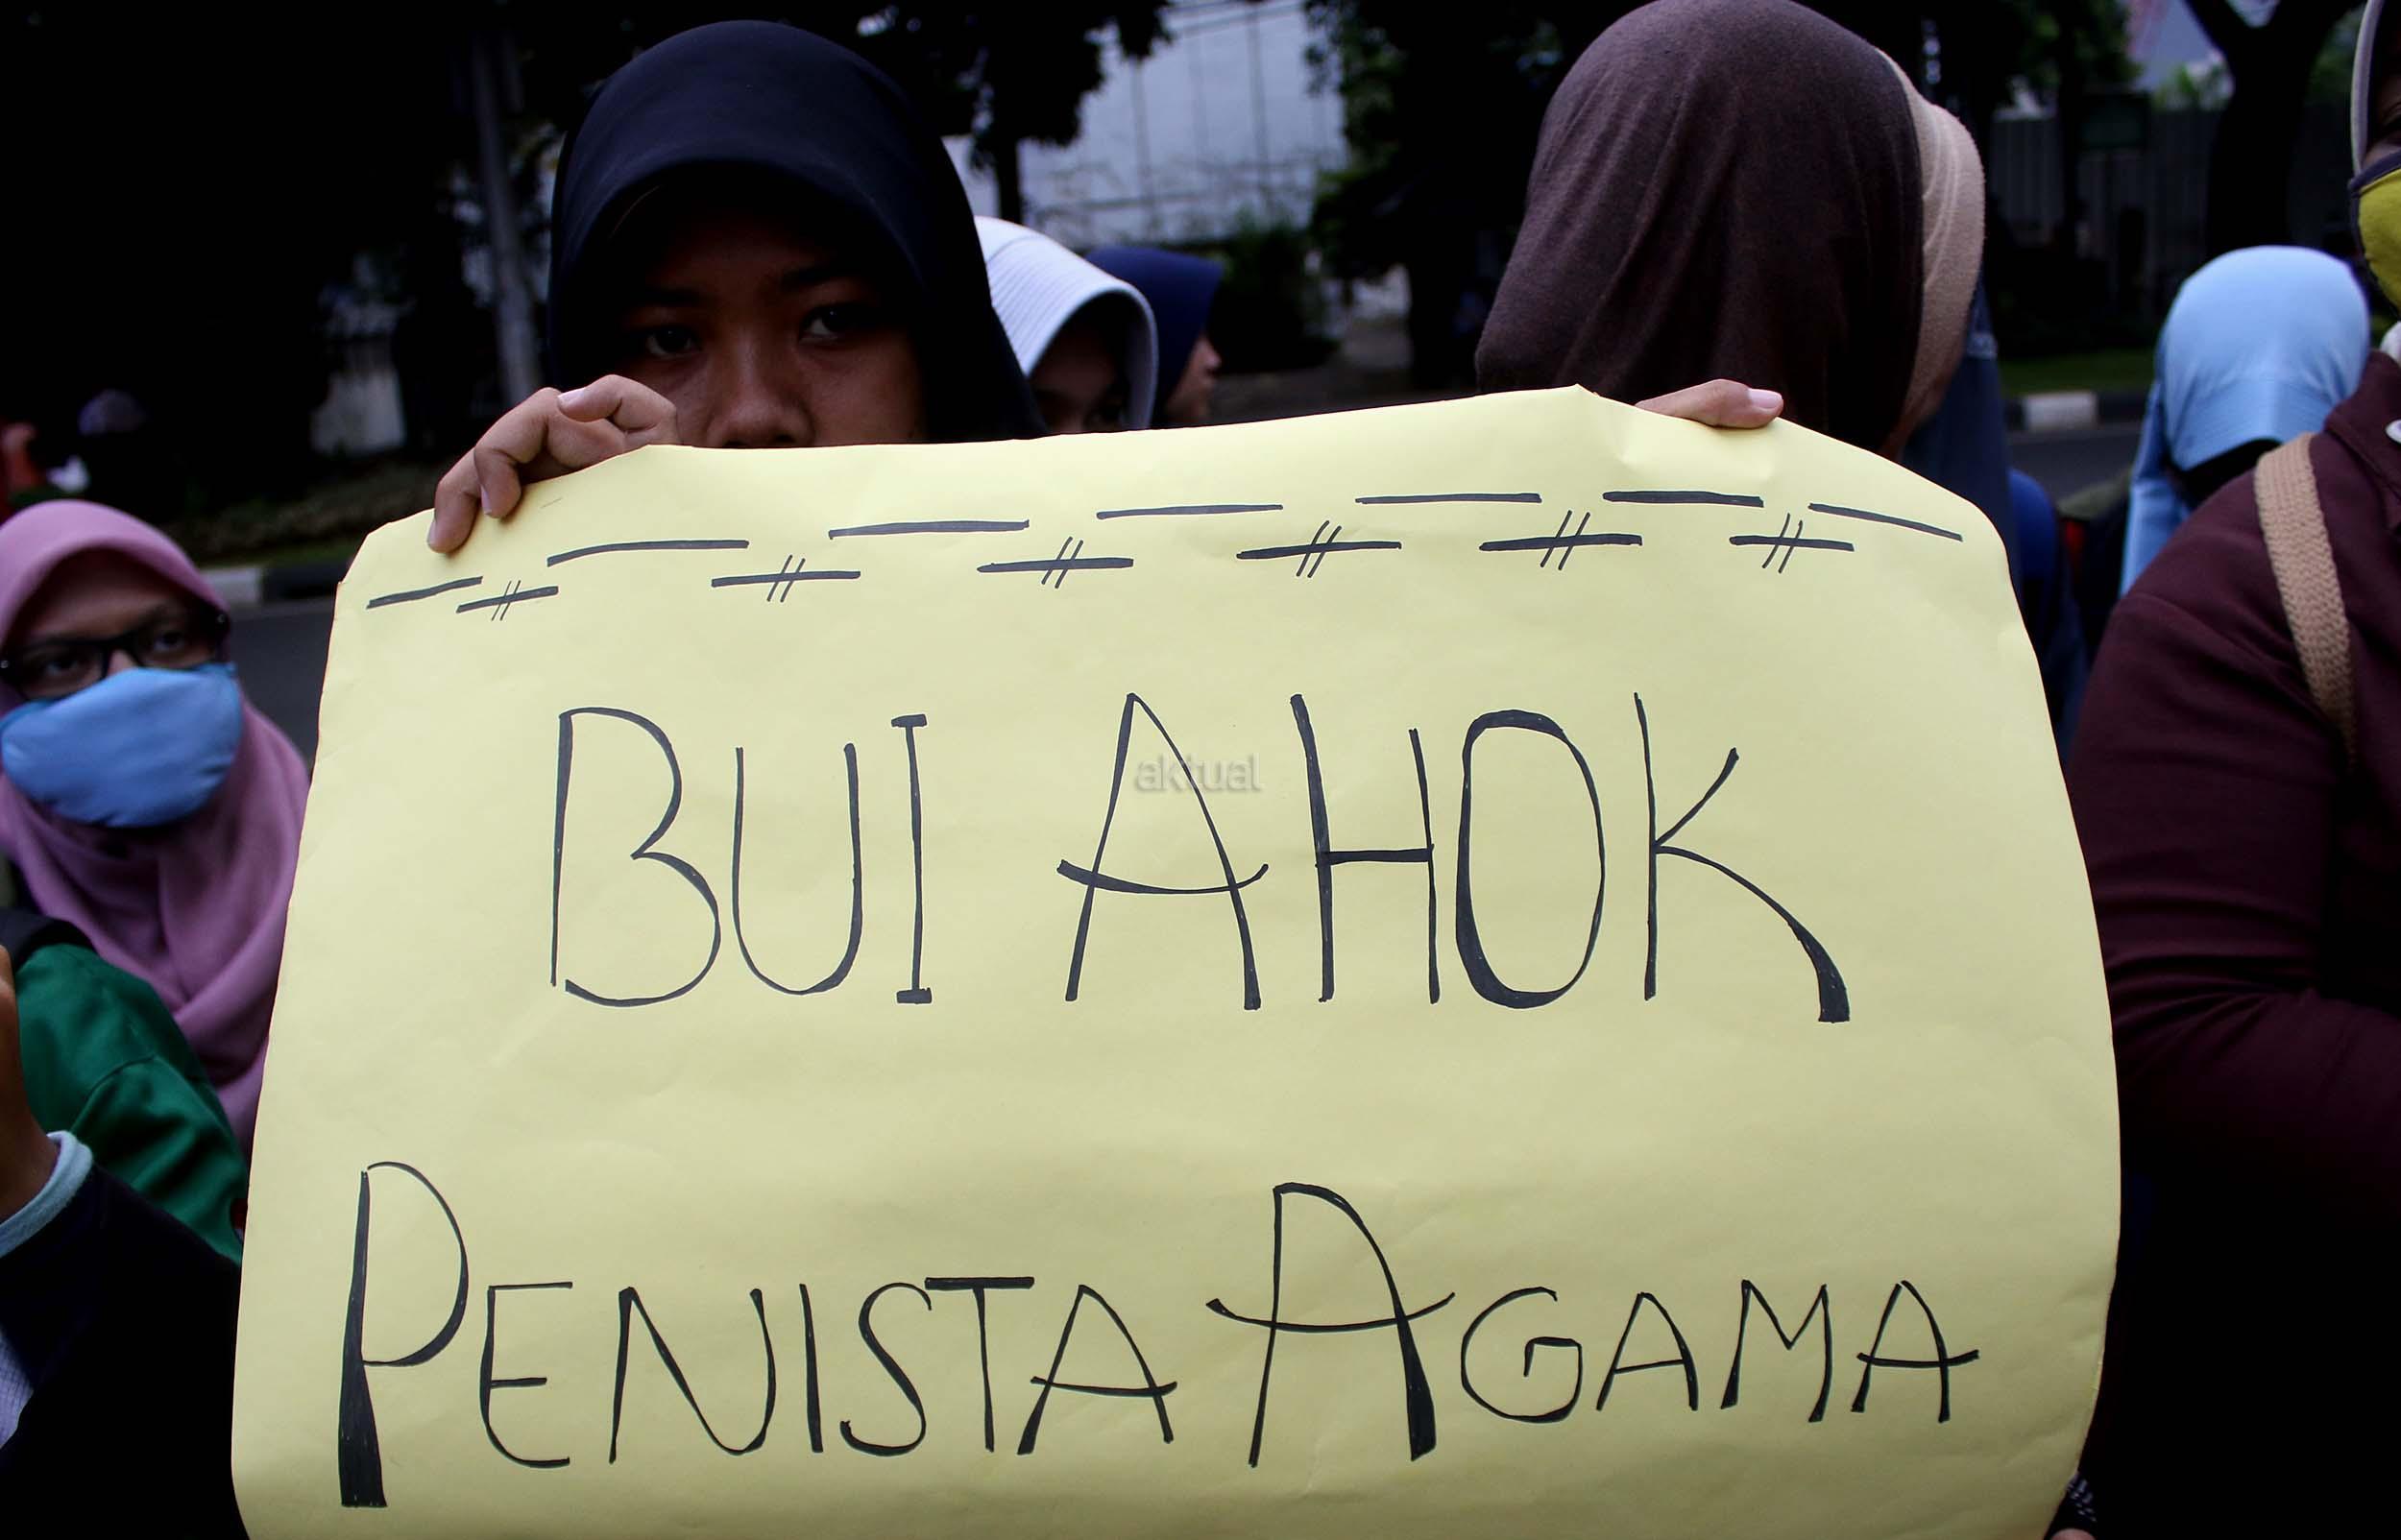 BUI AHOK
aktual
PENISTA AGAMA